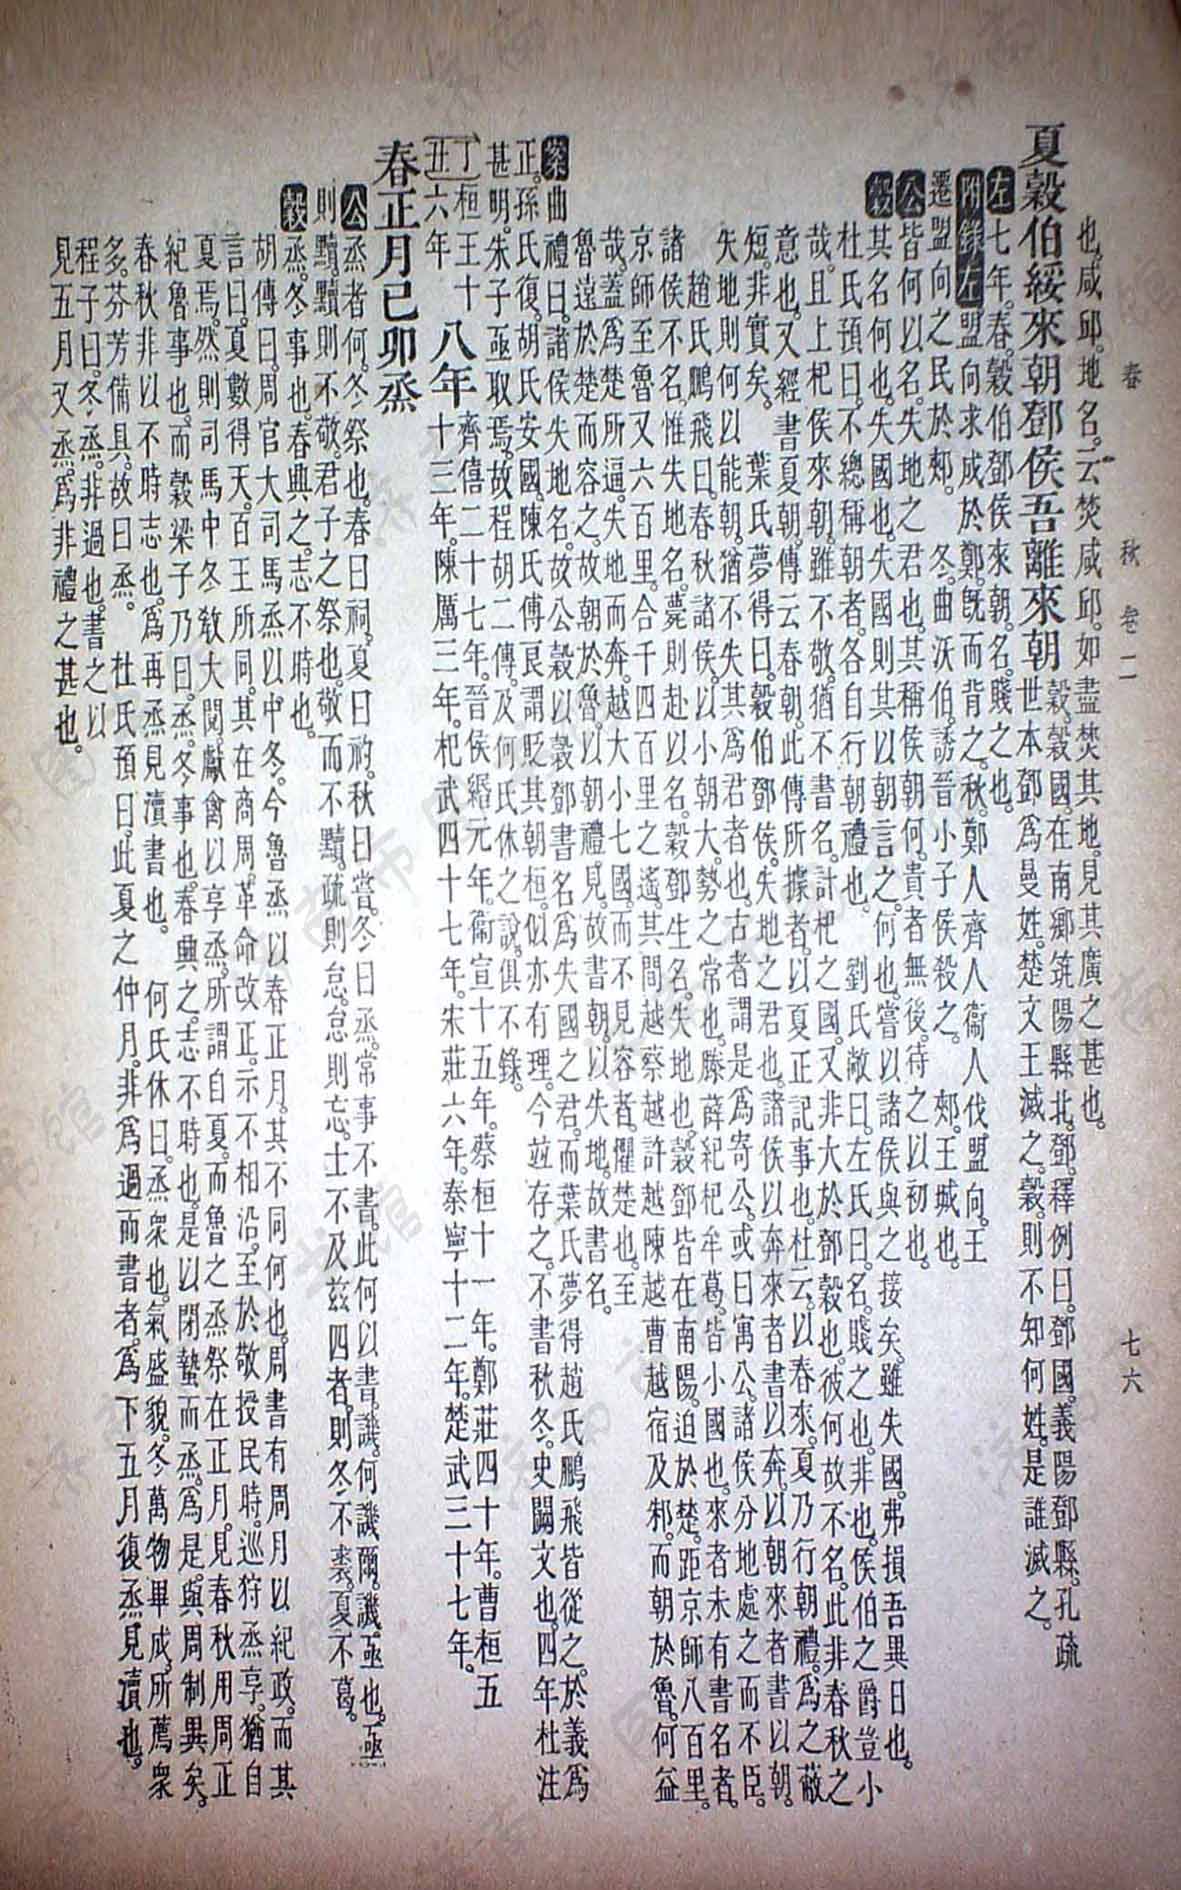 春 秋 卷二 七六
也。咸邱。地名。云焚咸邱。如盡焚其地。見其廣之甚也。
夏穀伯綏來朝鄧侯吾離來朝
穀。穀國。在南鄉筑陽縣北。鄧。釋例曰。鄧國。義陽鄧縣。孔疏
世本鄧爲曼姓。楚文王滅之。穀則不知何姓。是誰滅之。
左七年。春。穀伯鄧侯來朝。名。賤之也。
附錄左盟向求成於鄭。旣而背之。秋。鄭人齊人衞人伐盟向。王
遷盟向之民於郟。 冬。曲沃伯。誘晉小子侯殺之。 郟。王城也。
公皆何以名。失地之君也。其稱侯朝何。貴者無後。待之以初也。
穀其名何也。失國也。失國則其以朝言之。何也。嘗以諸侯與之接矣。雖失國。弗損吾異日也。
杜氏預曰。不總稱朝者。各自行朝禮也。 劉氏敞曰。左氏曰。名。賤之也。非也。侯伯之爵豈小
哉。且上杞侯來朝。雖不敬。猶不書名。計杞之國。又非大於鄧穀也。彼何故不名。此非春秋之
意也。又經書夏朝。傳云春朝。此傳所據者。以夏正記事也。杜云。以春來。夏乃行朝禮。爲之蔽
短。非實矣。 葉氏夢得曰。穀伯鄧侯。失地之君也。諸侯以奔來者書以奔。以朝來者書以朝。
失地則何以能朝。猶不失其爲君者也。古者謂是爲寄公。或曰寓公。諸侯分地處之而不臣。
趙氏鵬飛曰。春秋諸侯。以小朝大。勢之常也。滕薛紀杞牟葛。皆小國也。來者未有書名者。
諸侯不名。惟失地名。薨則赴以名。穀鄧生名。失地也。穀鄧皆在南陽。迫於楚。距京師八百里。
京師至魯又六百里。合千四百里之遙。其間越蔡越許越陳越曹越宿及邾。而朝於魯。何益
哉。蓋爲楚所逼。失地而奔。越大小七國。而不見容者。懼楚也。至
魯遠於楚而容之。故朝於魯。以朝禮見。故書朝。以失地。故書名。
案曲禮曰。諸侯失地名。故公穀以穀鄧書名爲失國之君。而葉氏夢得趙氏鵬飛皆從之。於義爲
正。孫氏復。胡氏安國。陳氏傅良。謂貶其朝桓。似亦有理。今竝存之。不書秋冬。史闕文也。四年杜注
甚明。朱子亟取焉。故程胡二傳。及何氏休之說。俱不錄。
丁丑
桓王十六年
八年
齊僖二十七年。晉侯緡元年。衞宣十五年。蔡桓十一年。鄭莊四十年。曹桓五
十三年。陳厲三年。杞武四十七年。宋莊六年。秦寧十二年。楚武三十七年。
春正月己卯烝
公烝者何。冬祭也。春曰祠。夏曰礿。秋曰嘗。冬曰烝。常事不書。此何以書。譏。何譏爾。譏。亟也。亟
則黷。黷則不敬。君子之祭也。敬而不黷。疏則怠。怠則忘。士不及茲四者。則冬不裘。夏不葛。
穀烝。冬事也。春興之。志不時也。
胡傳曰。周官大司馬烝以中冬。今魯烝以春正月。其不同何也。周書有周月以紀政。而其
言曰。夏數得天。百王所同。其在商周。革命改正。示不相沿。至於敬授民時。巡狩烝享。猶自
夏焉。然則司馬中冬敎大閱獻禽以享烝。所謂自夏。而魯之烝祭在正月。見春秋用周正
紀魯事也。而穀梁子乃曰。烝。冬事也。春興之。志不時也。是以閉蟄而烝。爲是。與周制異矣。
春秋非以不時志也。爲再烝見瀆書也。 何氏休曰。烝衆也。氣盛貌。冬萬物畢成。所薦衆
多。芬芳備具。故曰烝。 杜氏預曰。此夏之仲月。非爲過而書者。爲下五月復烝見瀆也。
程子曰。冬烝。非過也。書之以
見五月又烝。爲非禮之甚也。